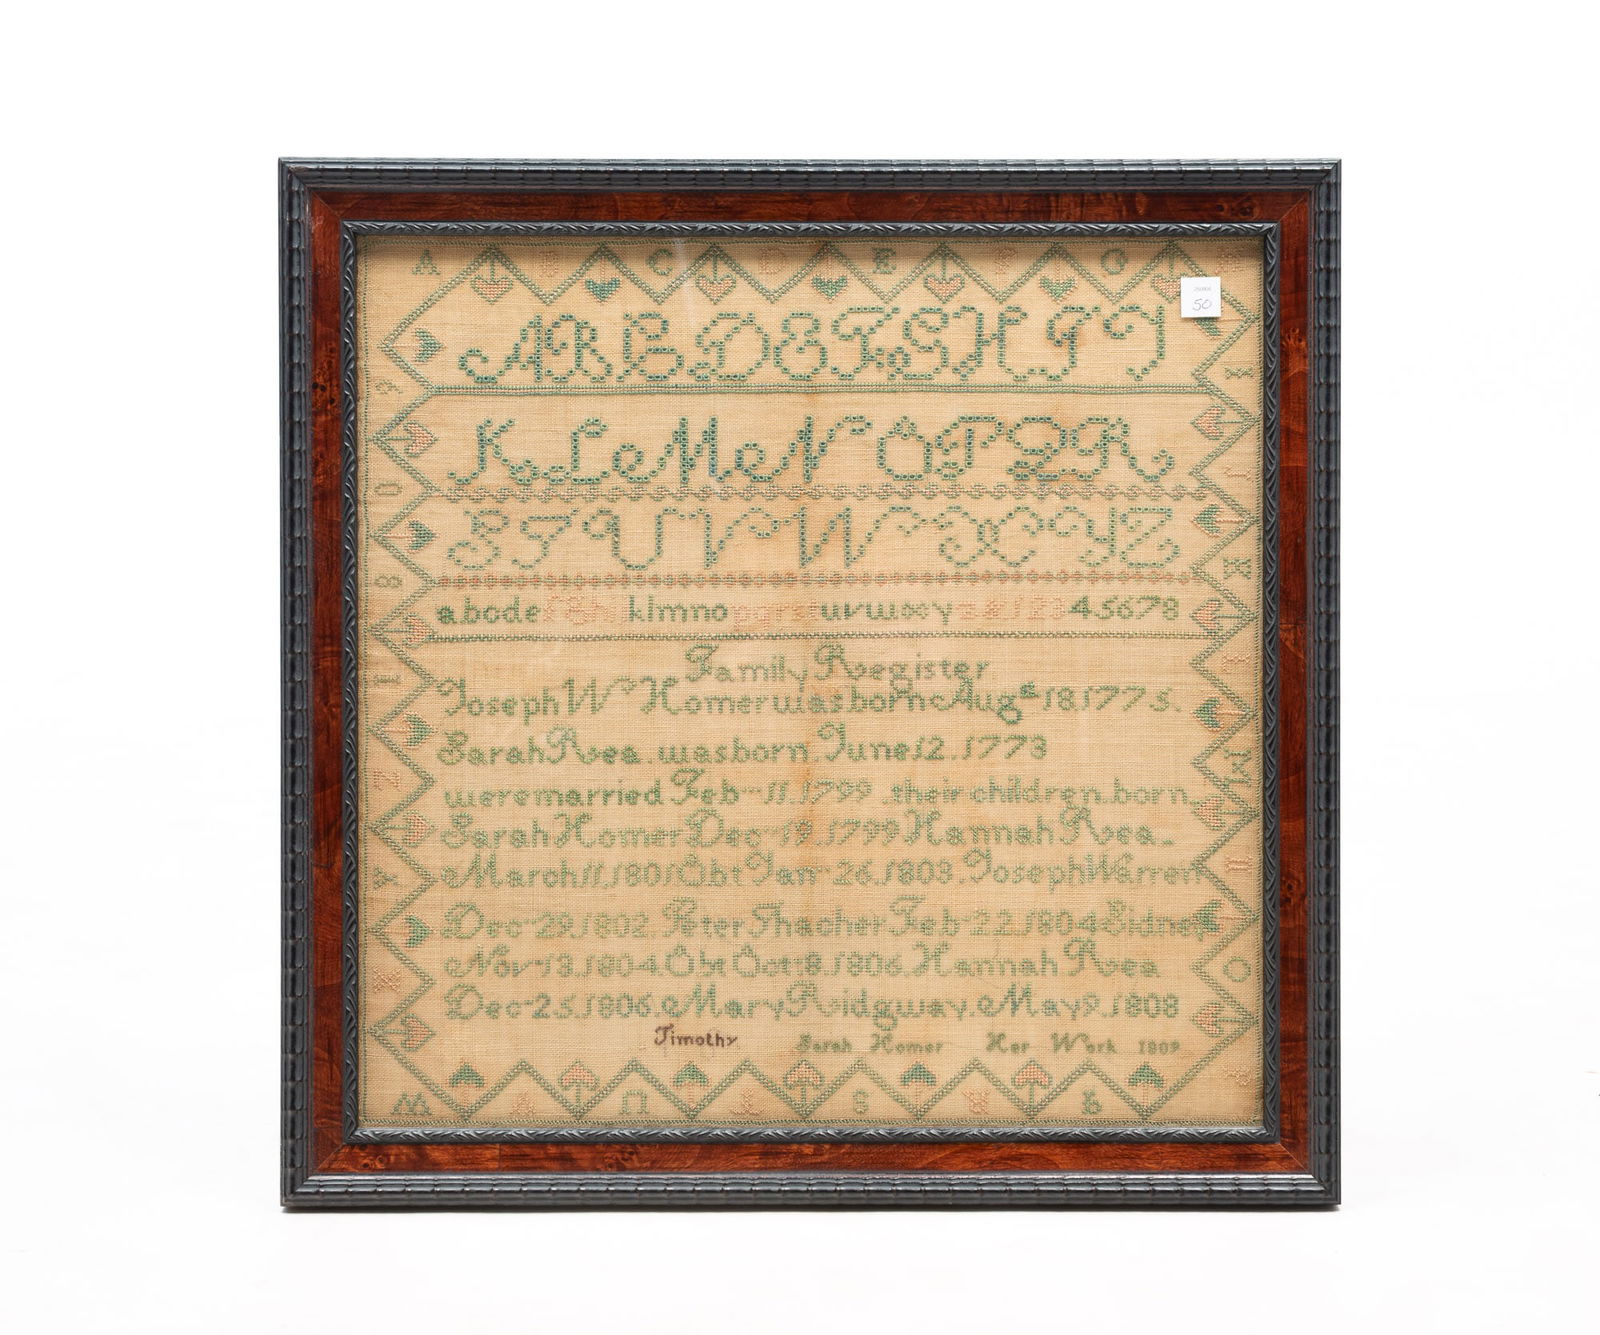 A B C D E F G H
50
A B C D E F G H I J
K L M N O P Q R
S T U V W X Y Z
a b c d e f g h i k l m n o p q r s t u v w x y z & 1 2 3 4 5 6 7 8
Family Register
Joseph W Homer was born Aug st 18. 1775.
Sarah Rea. was born. June 12. 1773
were married Feb 11. 1799. their children. born.
Sarah Homer Dec 19. 1799 Hannah Rea
March 11, 1801 Obt Jan 26. 1803. Joseph Warren
Dec 29. 1802. Peter Thacher Feb 22. 1804 Sidney
Nov 13. 1804. Obt Oct 8. 1806. Hannah Rea
Dec 25. 1806. Mary Ridgway. May 9. 1808
Timothy Sarah Homer Her Work 1809
W V U T S R Q